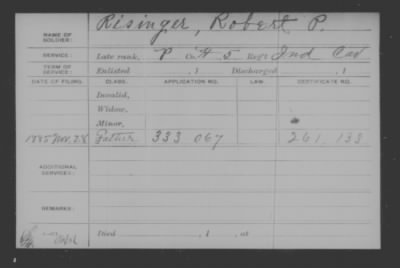 NAME OF SOLDIER: Risinger, Robert P.
SERVICE: Late rank, P Co. H 5 Reg't Ind Cav
TERM OF SERVICE: Enlisted , 1 Discharged , 1
DATE OF FILING. CLASS. APPLICATION NO. LAW. CERTIFICATE NO.
Invalid,
Widow,
Minor,
1885 Nov. 28 Father 333 067 261 133
ADDITIONAL SERVICES:
REMARKS:
Died , 1 , at